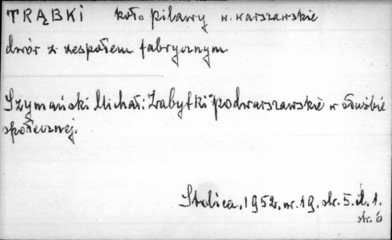 TRĄBKI koło Pilawy w. warszawskie
dwór z zespołem fabrycznym
Szymański Michał: Zabytki podwarszawskie w służbie
społecznej.
Stolica. 1952. nr. 19. str. 5. il. 1.
str. 6